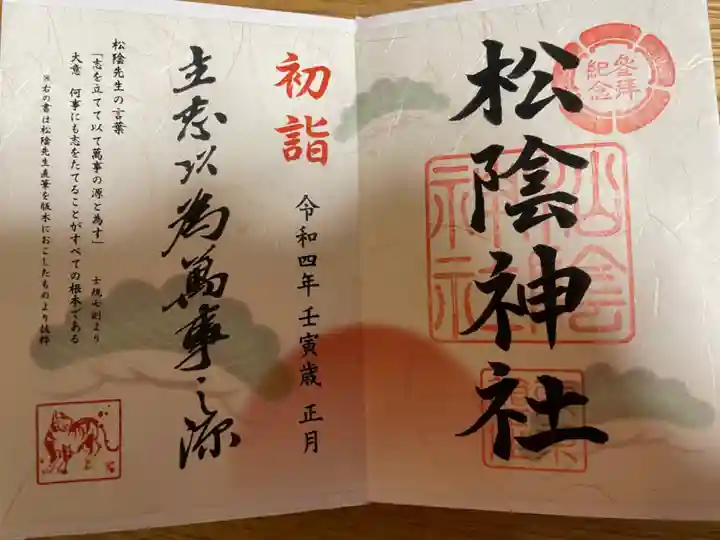 参拝
紀念
松陰神社
松陰
神社
初詣
令和四年 壬寅歳 正月
立志以為萬事之源
松陰先生の言葉
「志を立てて以て萬事の源と為す」 士規七則より
大意 何事にも志をたてることがすべての根本である
※右の書は松陰先生直筆を版木におこしたものより抜粋